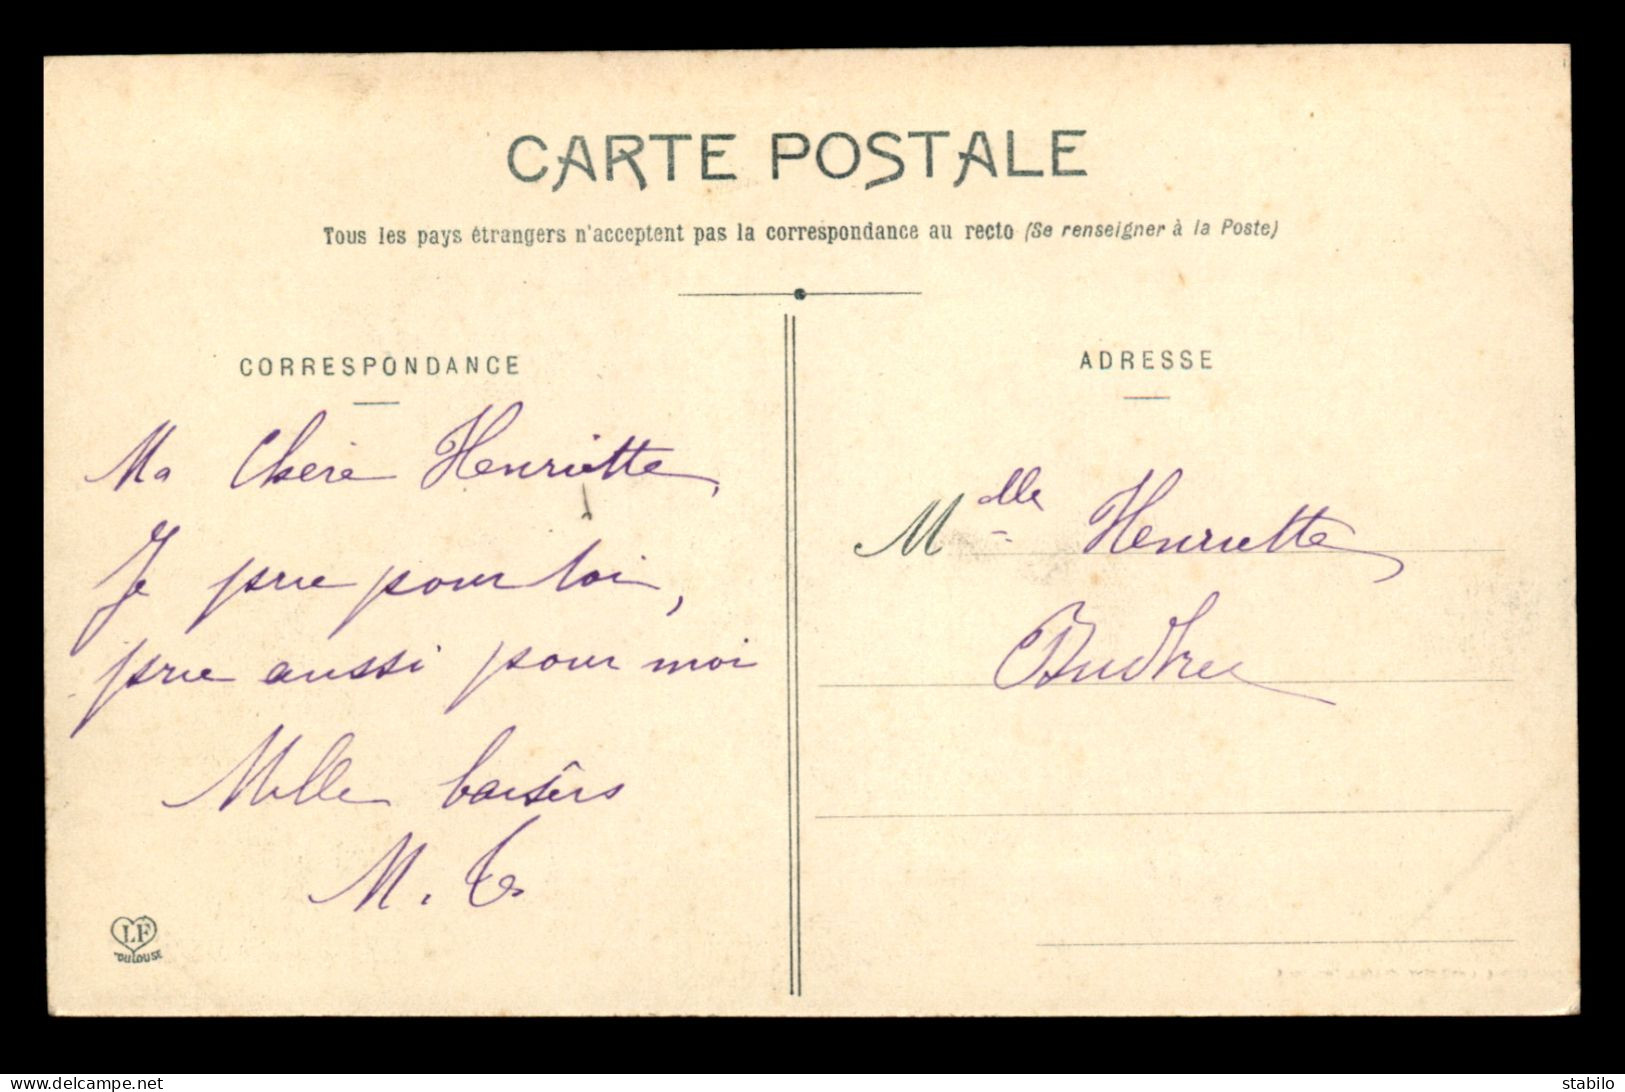 CARTE POSTALE
Tous les pays étrangers n'acceptent pas la correspondance au recto (Se renseigner à la Poste)
CORRESPONDANCE
Ma Chère Henriette,
Je prie pour toi,
prie aussi pour moi
Mille baisers
M.
LF
TOULOUSE
ADRESSE
Mdlle Henriette
delcampe.net
stabilo